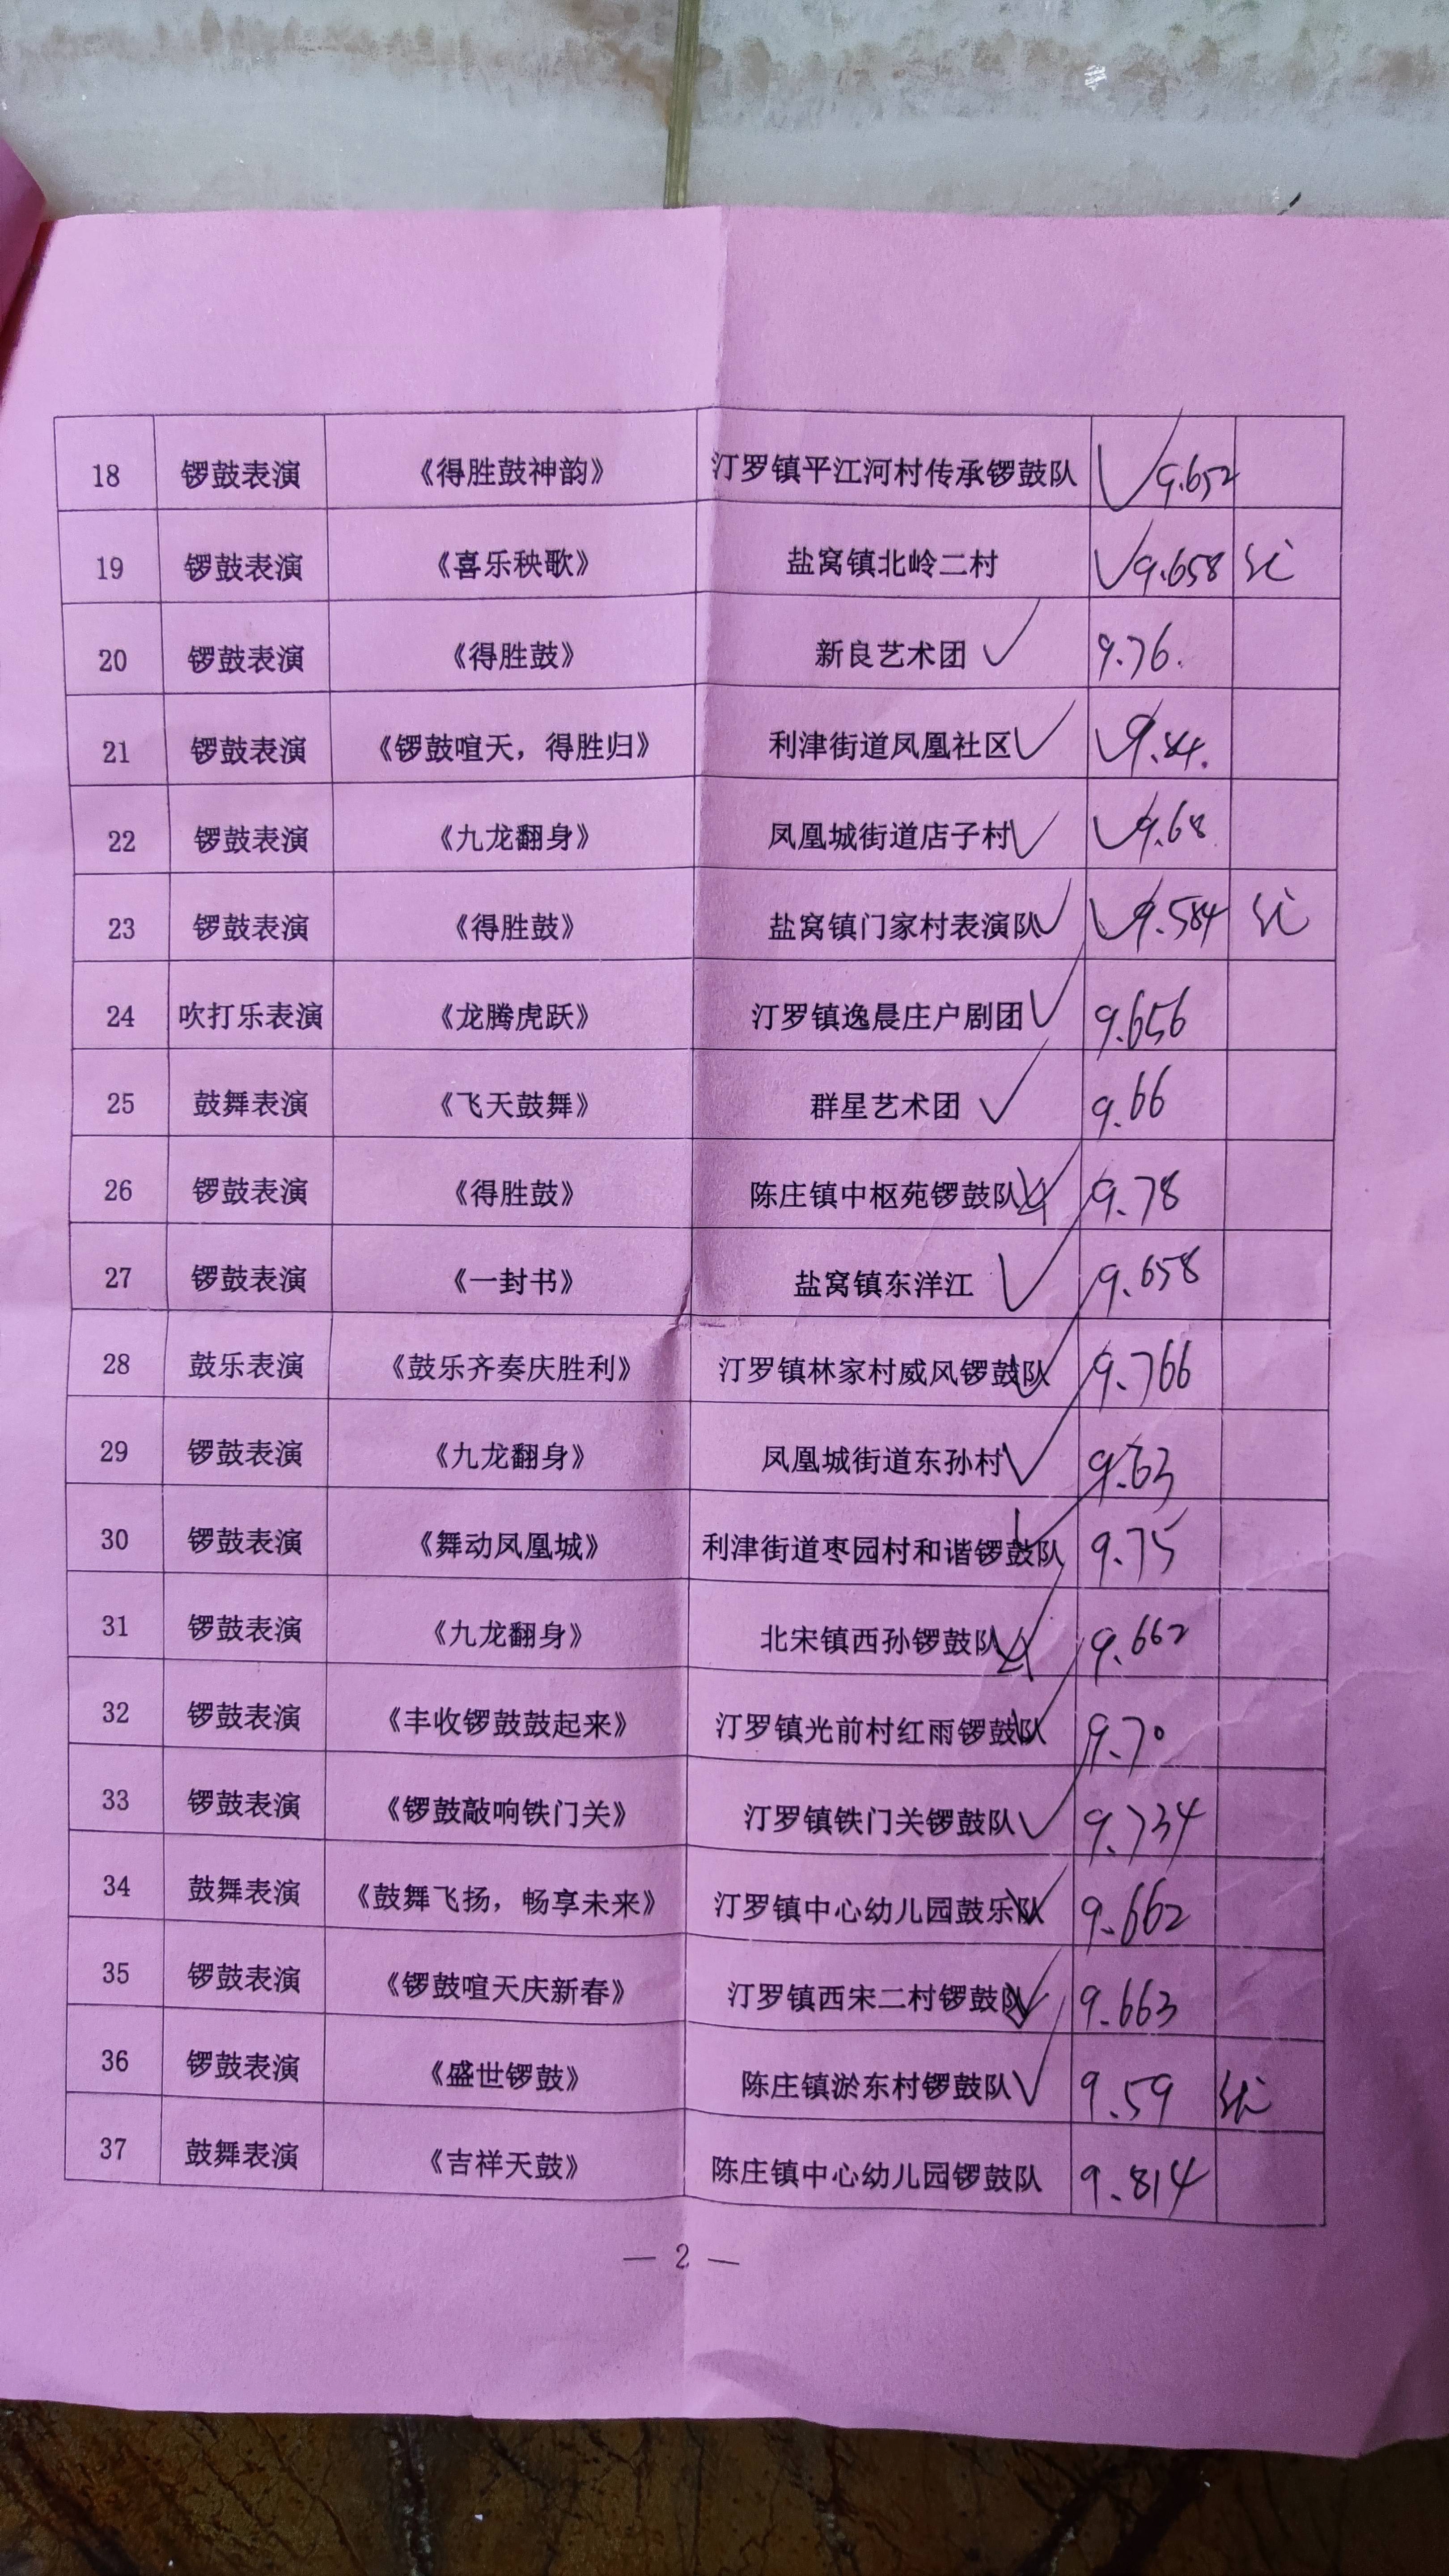 18 锣鼓表演 《得胜鼓神韵》 汀罗镇平江河村传承锣鼓队 √ 9.652
19 锣鼓表演 《喜乐秧歌》 盐窝镇北岭二村 √ 9.658
20 锣鼓表演 《得胜鼓》 新良艺术团 √ 9.76.
21 锣鼓表演 《锣鼓喧天，得胜归》 利津街道凤凰社区 √ √ 9.84.
22 锣鼓表演 《九龙翻身》 凤凰城街道店子村 √ √ 9.68
23 锣鼓表演 《得胜鼓》 盐窝镇门家村表演队 √ √ 9.584
24 吹打乐表演 《龙腾虎跃》 汀罗镇逸晨庄户剧团 √ 9.656
25 鼓舞表演 《飞天鼓舞》 群星艺术团 √ 9.66
26 锣鼓表演 《得胜鼓》 陈庄镇中枢苑锣鼓队 √ 9.78
27 锣鼓表演 《一封书》 盐窝镇东洋江 √ 9.658
28 鼓乐表演 《鼓乐齐奏庆胜利》 汀罗镇林家村威风锣鼓队 √ 9.766
29 锣鼓表演 《九龙翻身》 凤凰城街道东孙村 √ 9.63
30 锣鼓表演 《舞动凤凰城》 利津街道枣园村和谐锣鼓队 √ 9.75
31 锣鼓表演 《九龙翻身》 北宋镇西孙锣鼓队 √ 9.662
32 锣鼓表演 《丰收锣鼓鼓起来》 汀罗镇光前村红雨锣鼓队 √ 9.70
33 锣鼓表演 《锣鼓敲响铁门关》 汀罗镇铁门关锣鼓队 √ 9.734
34 鼓舞表演 《鼓舞飞扬，畅享未来》 汀罗镇中心幼儿园鼓乐队 √ 9.662
35 锣鼓表演 《锣鼓喧天庆新春》 汀罗镇西宋二村锣鼓队 √ 9.663
36 锣鼓表演 《盛世锣鼓》 陈庄镇淤东村锣鼓队 √ 9.59
37 鼓舞表演 《吉祥天鼓》 陈庄镇中心幼儿园锣鼓队 9.814
— 2 —